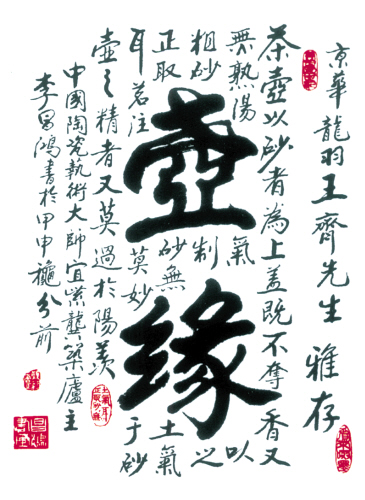 京華龍羽王齊先生雅存
壺緣
茶壺以砂者為上蓋既不奪香又
無熟湯氣以
粗砂制之
正取砂無土氣
耳茗注莫妙于砂
壺之精者又莫過於陽羨
中國陶瓷藝術大師宜紫龔築廬主
李昌鴻書於甲申穐分前